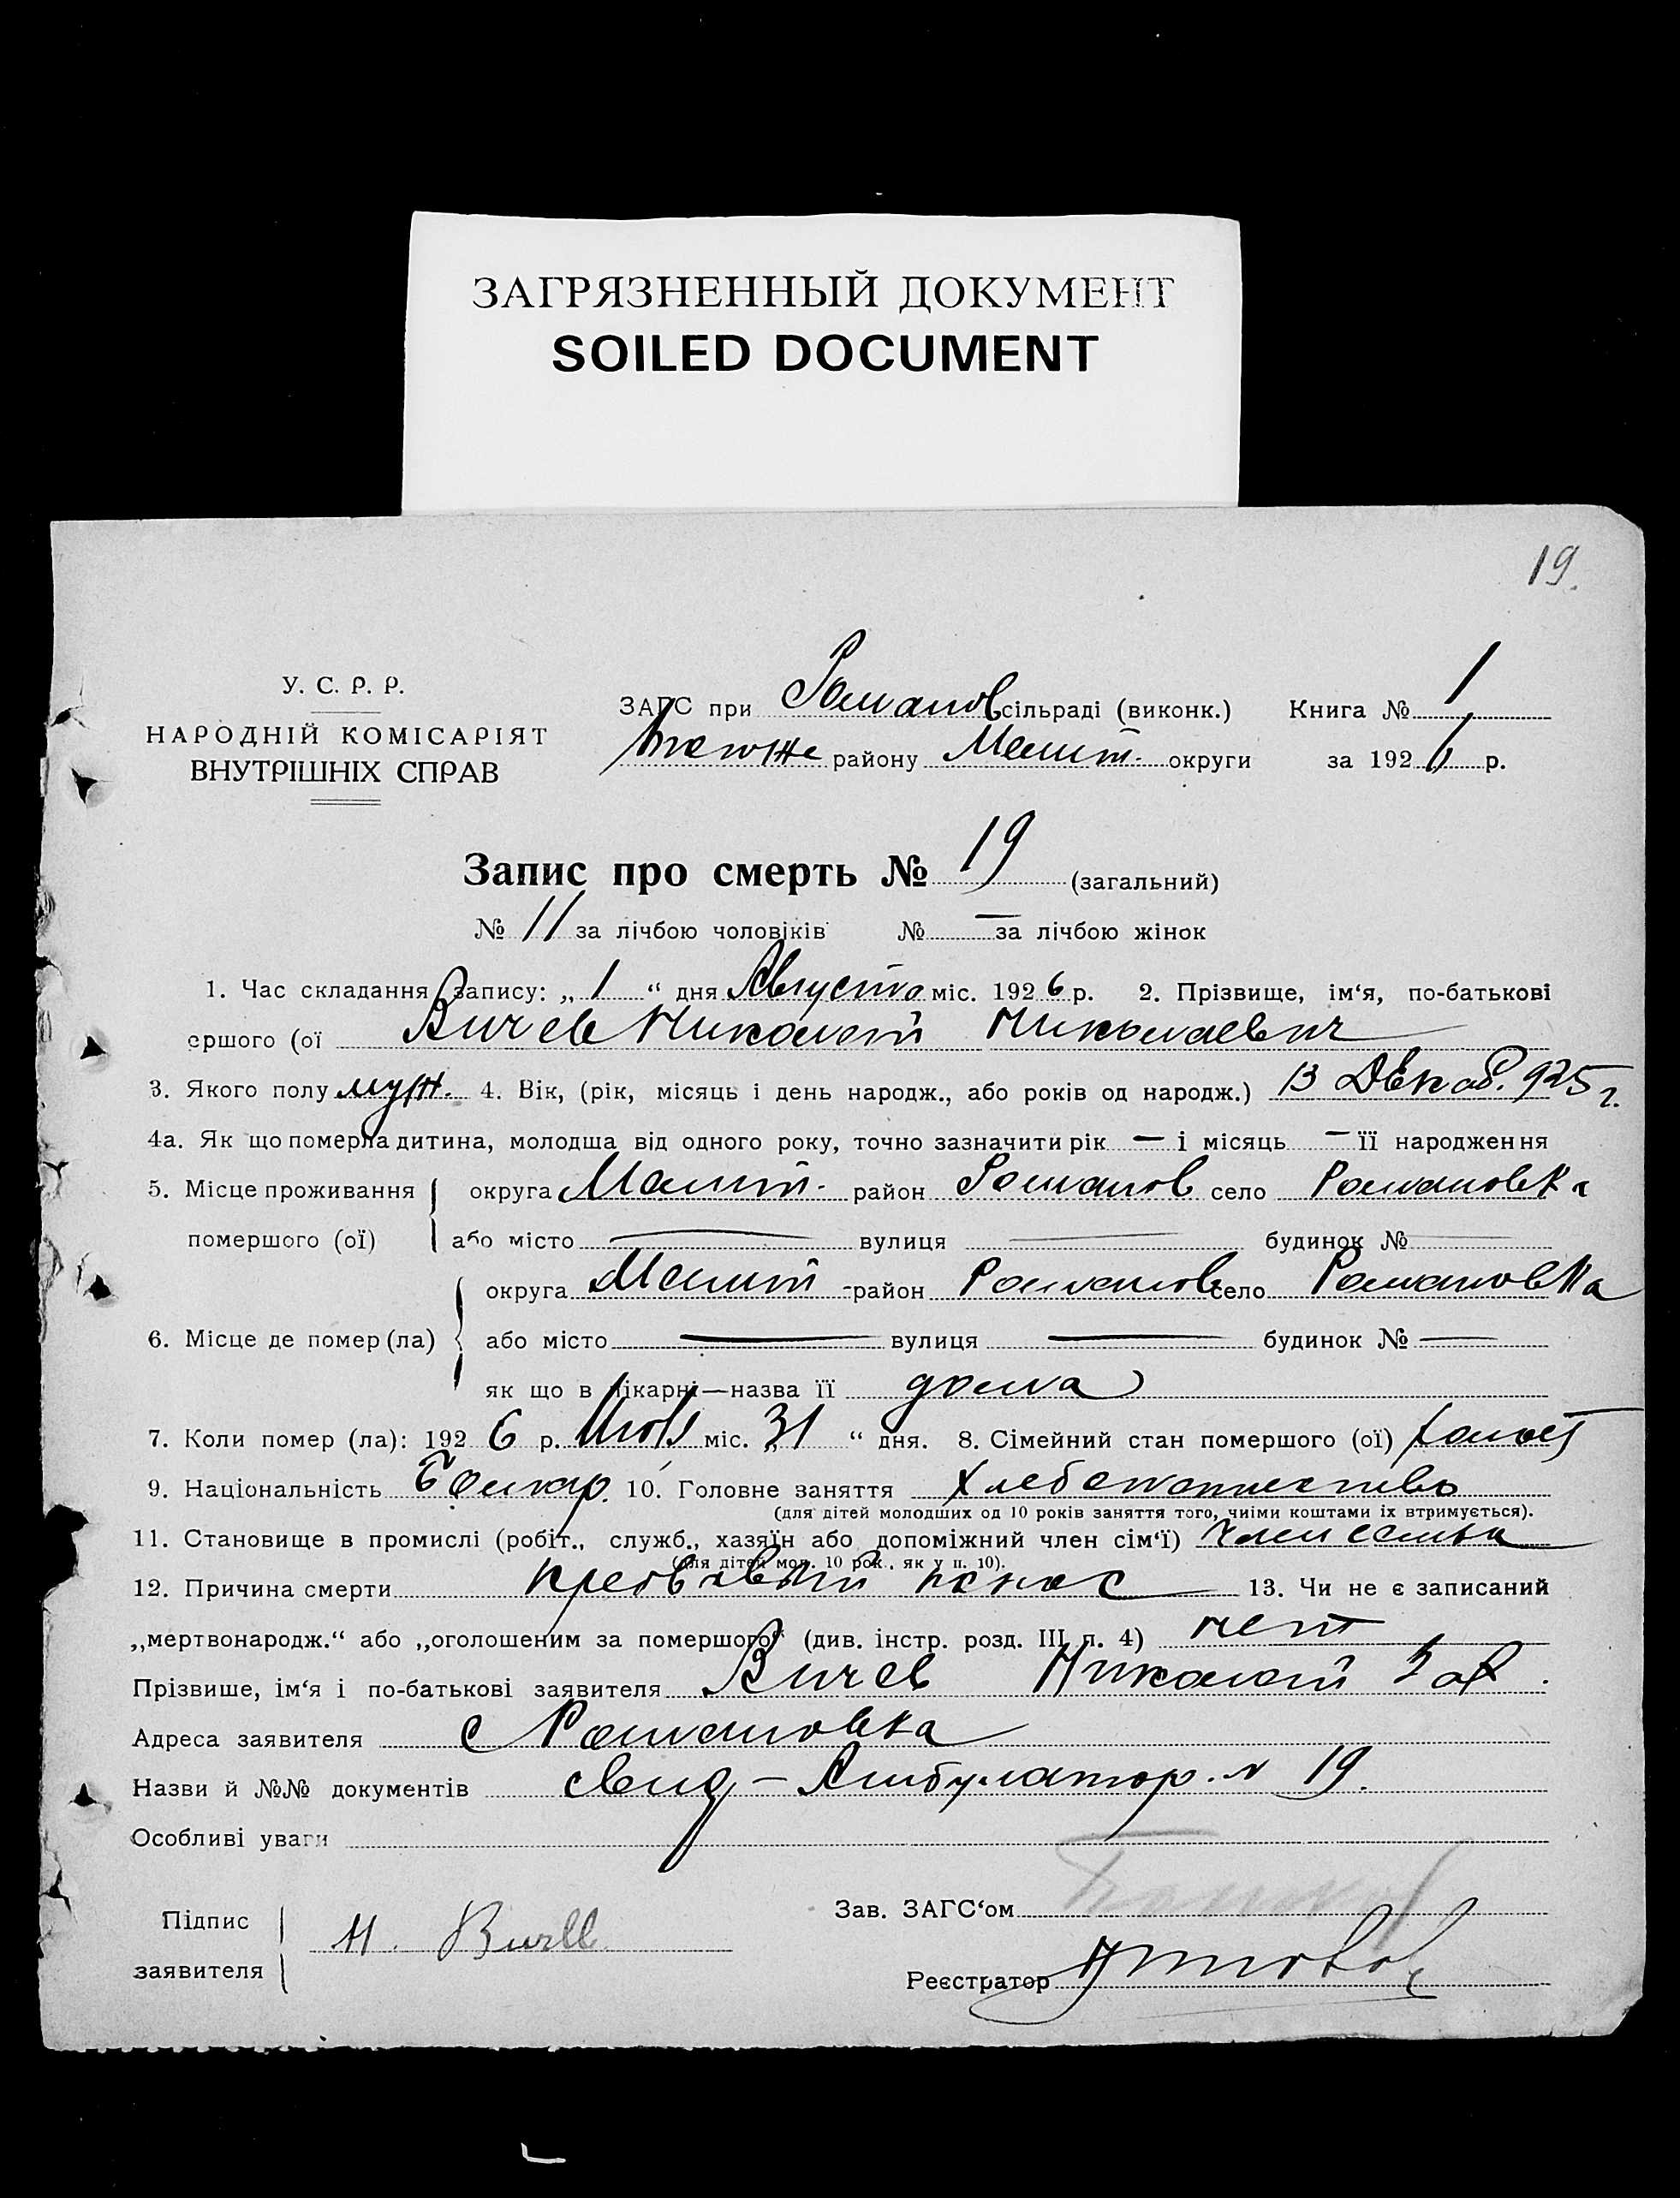 ЗАГРЯЗНЕННЫЙ ДОКУМЕНТ
SOILED DOCUMENT
19.
У. С. Р. Р.
НАРОДНІЙ КОМІСАРІЯТ
ВНУТРІШНІХ СПРАВ
ЗАГС при Романов сільраді (виконк.) Книга № 1
тогоже району Мелит. округи за 1926 р.
Запис про смерть № 19 (загальний)
№ 11 за лічбою чоловіків № — за лічбою жінок
1. Час складання запису: „ 1 “ дня Августа міс. 1926 р. 2. Прізвище, ім‘я, по-батькові
ершого (ої Вичев Николай Николаевич
3. Якого полу муж. 4. Вік, (рік, місяць і день народж., або років од народж.) 13 Декаб. 925 г.
4а. Як що померла дитина, молодша від одного року, точно зазначити рік — і місяць — її народження
5. Місце проживання округа Мелит. район Романов село Романовка
помершого (ої) або місто — вулиця — будинок № —
округа Мелит район Романов село Романовка
6. Місце де помер (ла) або місто — вулиця — будинок № —
як що в лікарні—назва її дома
7. Коли помер (ла): 1926 р. Июль міс. „ 31 “ дня. 8. Сімейний стан помершого (ої) холост
9. Національність Болгар. 10. Головне заняття Хлебопашество
(для дітей молодших од 10 років заняття того, чиїми коштами їх втримується).
11. Становище в промислі (робіт., служб., хазяїн або допоміжний член сім‘ї) Член семьи
(для дітей мол. 10 рок., як у п. 10).
12. Причина смерти кровавый понос 13. Чи не є записаний
„мертвонародж.“ або „оголошеним за помершого“ (див. інстр. розд. III п. 4) нет
Прізвище, ім‘я і по-батькові заявителя Вичев Николай
Адреса заявителя с Романовка
Назви й №№ документів свид – Амбулатор. № 19.
Особливі уваги
Зав. ЗАГС‘ом
Підпис
заявителя Н. Вичев
Реєстратор